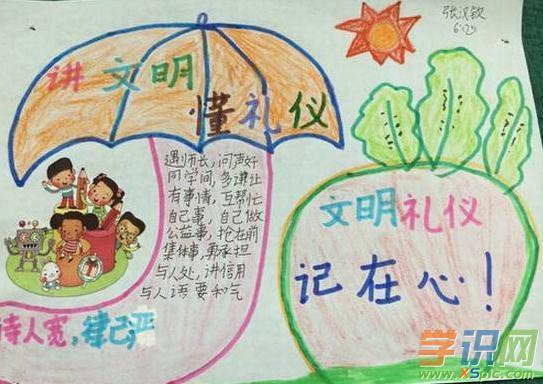 张汉钦
6(2)
讲文明
懂礼仪
遇师长,问声好
同学间,多谦让
有事情,互帮忙
自己事,自己做
公益事,抢在前
集体事,勇承担
与人处,讲信用
与人语要和气
待人宽,律己严
文明礼仪
记在心!
学识网
www.XSpic.com